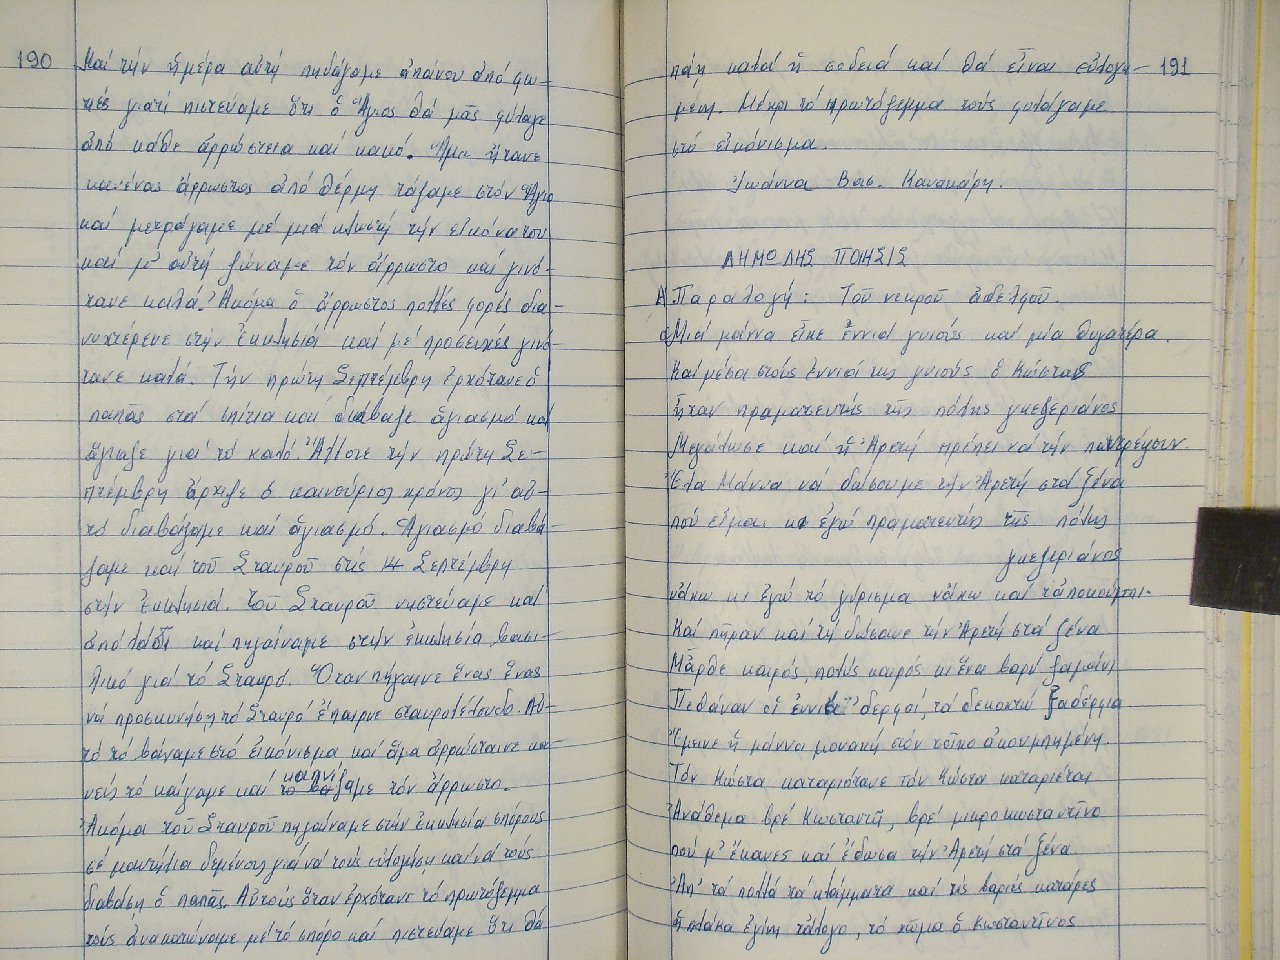 190
Καί τήν ἡμέρα αὐτή πηδάγαμε ἀπάνου ἀπό φω-
τιές γιατί πιστεύαμε ὅτι ὁ Ἅγιος θά μᾶς φύλαγε
ἀπό κάθε ἀρρώστεια καί κακό. Ἅμα ἤτανε
κανένας ἄρρωστος ἀπό θέρμη τάζαμε στόν Ἅγιο
καί μετράγαμε μέ μιά κλωστή τήν εἰκόνα του
καί μ' αὐτή ζώναμε τόν ἄρρωστο καί γινό-
τανε καλά. Ἀκόμα ὁ ἄρρωστος πολλές φορές δια-
νυχτέρευε στήν ἐκκλησιά καί μέ προσευχές γινό-
τανε καλά. Τήν πρώτη Σεπτέμβρη ἐρχότανε ὁ
παπᾶς στά σπίτια καί διάβαζε ἁγιασμό καί
ἅγιαζε γιά τό καλό. Ἄλλοτε τήν πρώτη Σε-
πτέμβρη ἄρχιζε ὁ καινούριος χρόνος γι' αὐ-
τό διαβάζαμε καί ἁγιασμό. Ἁγιασμό διαβά-
ζαμε καί τοῦ Σταυροῦ στίς 14 Σεπτέμβρη
στήν ἐκκλησιά. Τοῦ Σταυροῦ νηστεύαμε καί
ἀπό λάδι καί πηγαίναμε στήν ἐκκλησία βασι-
λικό γιά τό Σταυρό. Ὅταν πήγαινε ἕνας ἕνας
νά προσκυνήση τό Σταυρό ἔπαιρνε σταυρολούλουδο. Αὐ-
τό τό βάναμε στό εἰκόνισμα καί ἅμα ἀρρώσταινε κα-
νείς τό καίγαμε καί καπνίζαμε τόν ἄρρωστο.
Ἀκόμα τοῦ Σταυροῦ πηγαίναμε στήν ἐκκλησία σπόρους
σέ μαντήλια δεμένους γιά νά τούς εὐλογήση καί νά τούς
διαβάση ὁ παπᾶς. Αὐτούς ὅταν ἐρχότανε τό πρωτόζεμα
τούς ἀνακατώναμε μέ τό σπόρο καί πιστεύαμε ὅτι θά
191
πάη καλά ἡ σοδειά καί θά εἶναι εὐλογη-
μένη. Μέχρι τό πρωτόζεμμα τούς φυλάγαμε
στό εἰκόνισμα.
Ἰωάννα Βασ. Κανακάρη.
ΔΗΜΩΔΗΣ ΠΟΙΗΣΙΣ
Α Παραλογή: Τοῦ νεκροῦ ἀδελφοῦ.
α Μιά μάννα εἶχε ἐννιά γυιούς καί μία θυγατέρα.
Καί μέσα στούς ἐννιά της γυιούς ὁ Κώστας
ἦταν πραματευτής τῆς πόλης γκεζεριάνος
Μεγάλωσε καί ἡ Ἀρετή πρέπει νά τήν παντρέψουν.
Ἔλα Μάννα νά δώσουμε τήν Ἀρετή στά ξένα
πού εἶμαι κι ἐγώ πραματευτής τῆς πόλης
γκεζεριάνος
νάχω κι ἐγώ τό γύρισμα νάχω καί τ' ἀποκούμπι.
Καί πῆραν καί τή δώσανε τήν Ἀρετή στά ξένα
Μᾶρθε καιρός, πολύς καιρός κι ἕνα βαρύ ζαμάνι
Πεθάναν οἱ ἐννιά δερφοί, τά δεκαχτώ ξαδέρφια
Ἔμεινε ἡ μάννα μοναχή στόν τοῖχο ἀκουμπημένη.
Τόν Κώστα καταριότανε τόν Κώστα καταριέται
Ἀνάθεμα βρέ Κωσταντῆ, βρέ μικροκωσταντῖνο
πού μ' ἔκανες καί ἔδωσα τήν Ἀρετή στά ξένα
Ἀπ' τά πολλά τά κλάμματα καί τίς βαριές κατάρες
ἡ πλάκα ἐγίνη τἄλογο, τό χῶμα ὁ Κωσταντῖνος